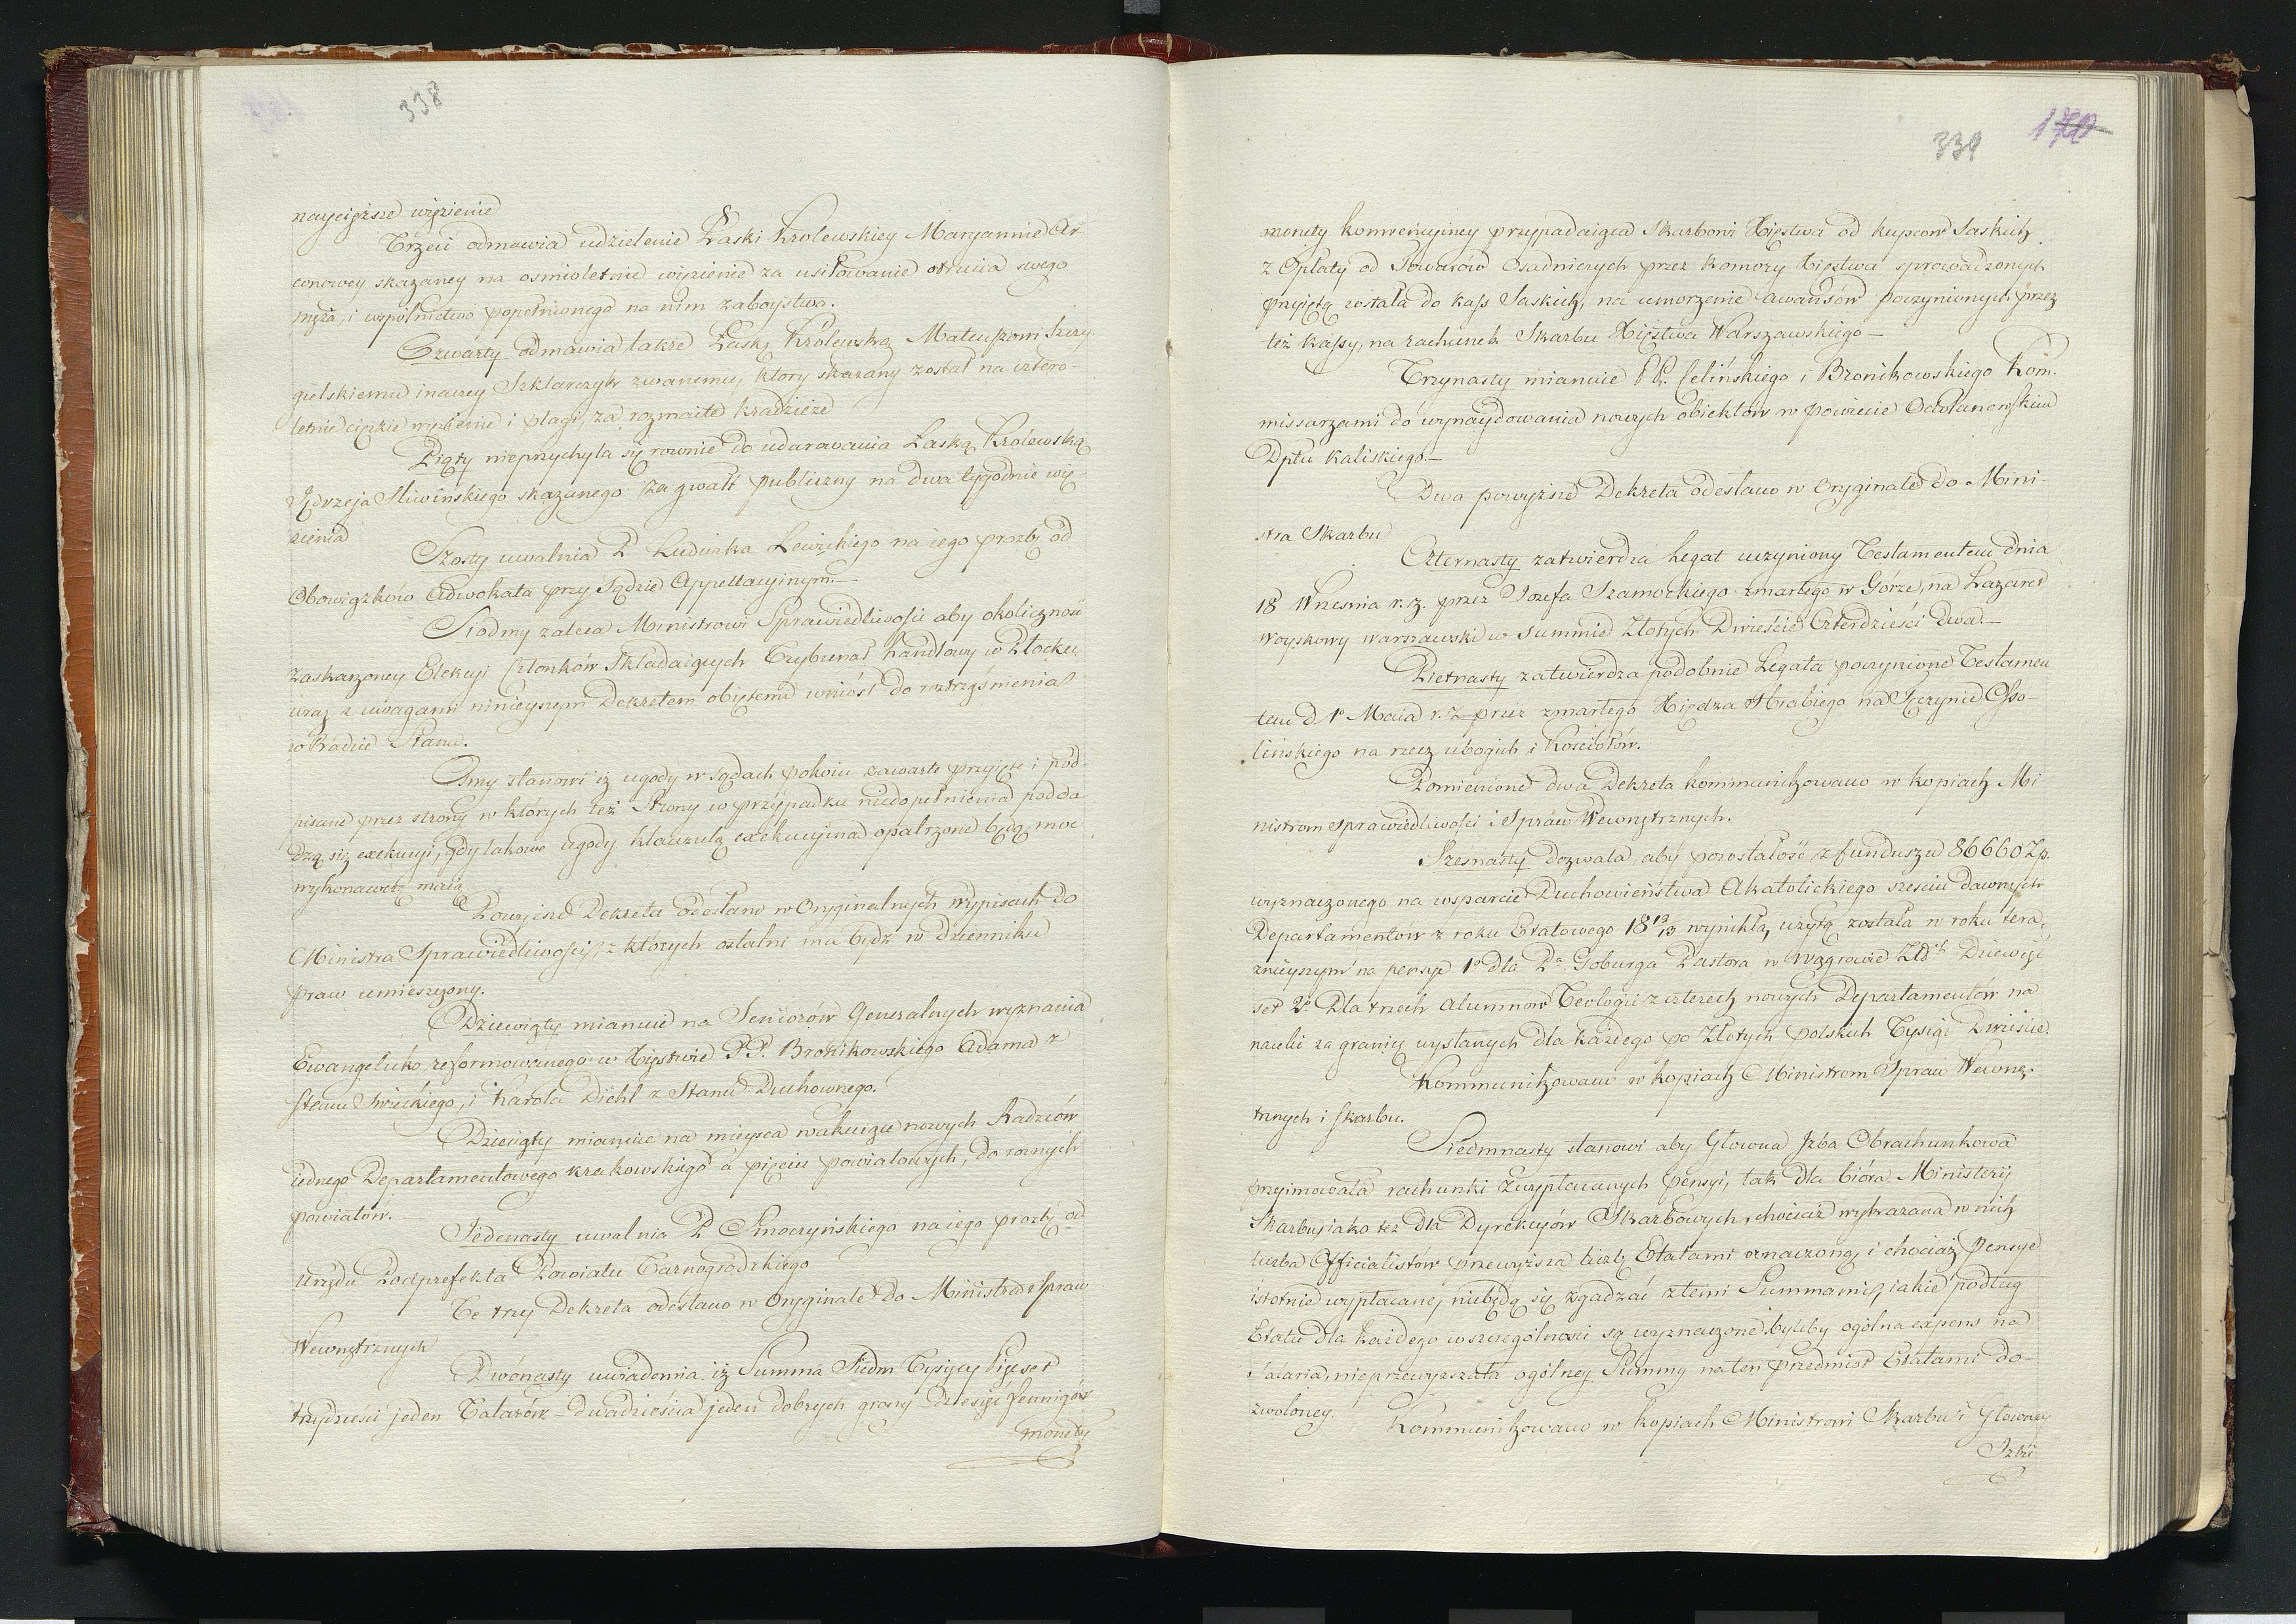 338
naycięższe więzienie
Trzeci odmawia udzielenie Łaski Krolewskiey Maryannie Ar
conowey skazaney na osmioletnie więzienie za usiłowanie otrucia swego
męża, i wspólnictwo popełnionego na nim zaboystwa.
Czwarty odmawia także Łaskę Królewską Mateuszowi Szczy-
gielskiemu inaczey Szklarczyk zwanemu, ktory skazany został na cztero-
letnie ciężkie więzienie i plagi, za rozmaite kradzieże
Piąty nieprzychyla się rownie do udarowania Łaską Krolewską
Jędrzeja Sliwińskiego skazanego za gwałt publiczny na dwa tygodnie wię-
zienia
Szosty uwalnia P Ludwika Lewickiego na iego prozbę od
Obowiązków Adwokata przy Sądzie Appellacyinym.—
Siodmy zaleca Ministrowi Sprawiedliwości aby okoliczność
zaskarzoney Elekcyi Członków Składaiących Trybunał handlowy w Płocku
wraz z uwagami ninieyszym Dekretem obiętemi wniósł do roztrząśnienia
w Radzie Stanu.
Osmy stanowi iż ugody w sądach pokoiu zawarte przyięte i pod-
pisane przez strony w których też Strony w przypadku niedopełnienia podda
dzą się exekucyi, gdy takowe ugody klauzulą exekucyjną opatrzone będą moc
wykonawczą maią
Powyższe Dekreta odesłano w Oryginalnych wypisach do
Ministra Sprawiedliwości, z których ostatni ma bydź w dzienniku
praw umieszczony.
Dziewiąty mianuie na Seniorów Generalnych wyznania
Ewangelicko reformowanego w Xięstwie PP. Bronikowskiego Adama z
stanu Swieckiego, i Karola Diehl z Stanu Duchownego.
Dziesiąty mianuie na mieysca wakuiące nowych Radzców
iednego Departamentowego krakowskiego a pięciu powiatowych, do roznych
powiatow.—
Jedenasty uwalnia P Smoczyńskiego na iego prozbę od
Urzędu Podprefekta Powiatu Tarnogrodzkiego
Te trzy Dekreta odesłano w Oryginale do Ministra Spraw
Wewnętrznych
Dwónasty uwiadomia iż Summa Siedm Tysięcy Pięcset
trzydzieści jeden Talarów dwadzieścia jeden dobrych groszy dziesięć fenigów
monety
339
170
monety konwencyiney przypadaiąca Skarbowi Xięstwa od kupcow Saskich
z Opłaty od Towarów Osadniczych przez Komory Xięstwa sprowadzonych
przyiętą została do kass Saskich, na umorzenie awansów poczynionych przez
też kassy, na rachunek Skarbu Xięstwa Warszawskiego —
Trzynasty mianuie PP. Celińskiego i Bronikowskiego Kom-
missarzami do wynaydowania nowych obiektow w powiecie Odolanowskim
Dptu Kaliskiego.—
Dwa powyższe Dekreta odesłano w Oryginale do Mini-
stra Skarbu
Czternasty zatwierdza Legat uczyniony Testamentem dnia
18 Wrzesnia r. z. przez Jozefa Szamockiego zmarłego w Górze, na Lazaret
Woyskowy warszawski w summie Złotych Dwieście Czterdzieści dwa.—
Pietnasty zatwierdza podobnie Legata poczynione Testamen
tem D 1o Maia r. z. przez zmarłego Xiędza Hrabiego na Tęczynie Osso-
lińskiego na rzecz ubogich i Kościołów.
Pomienione dwa Dekreta kommunikowano w kopiach Mi
nistrom Sprawiedliwości i Spraw Wewnętrznych.
Szesnasty dozwala aby pozostałość z funduszu 86660 Zp.
wyznaczonego na wsparcie Duchowieństwa Akatolickiego sześciu dawnych
Departamentow z roku Etatowego 18 12/13 wynikła, użytą została w roku tera-
znieyszym na pensye 1o dla Pa. Goburga Pastora w Wągrowie Złch Dziewięć
set 2o Dla trzech Alumnow Teologii z czterech nowych Departamentów na
nauki za granicę wysłanych dla każdego po Złotych polskich Tysiąc Dwieście
Kommunikowano w kopiach Ministrom Spraw Wewnę-
trznych i Skarbu.
Siedmnasty stanowi aby Głowna Izba Obrachunkowa
przyimowała rachunki z wypłacanych pensyi, tak dla bióra Ministeryi
Skarbu, iako też dla Dyrekcyów Skarbowych, chociaż wykazana w nich
liczba Officialistów przewyższa liczbę Etatami oznaczoną, i chociaż Pensye
istotnie wypłacane, niebędą się zgadzać z temi Summami, iakie podług
Etatu dla każdego w szczególności są wyznaczone byleby ogólna expens na
Salaria, nieprzewyższała ogólney Summy na ten przedmiot Etatami do-
zwoloney.
Kommunikowano w kopiach Ministrowi Skarbu i Głowney
Izbie